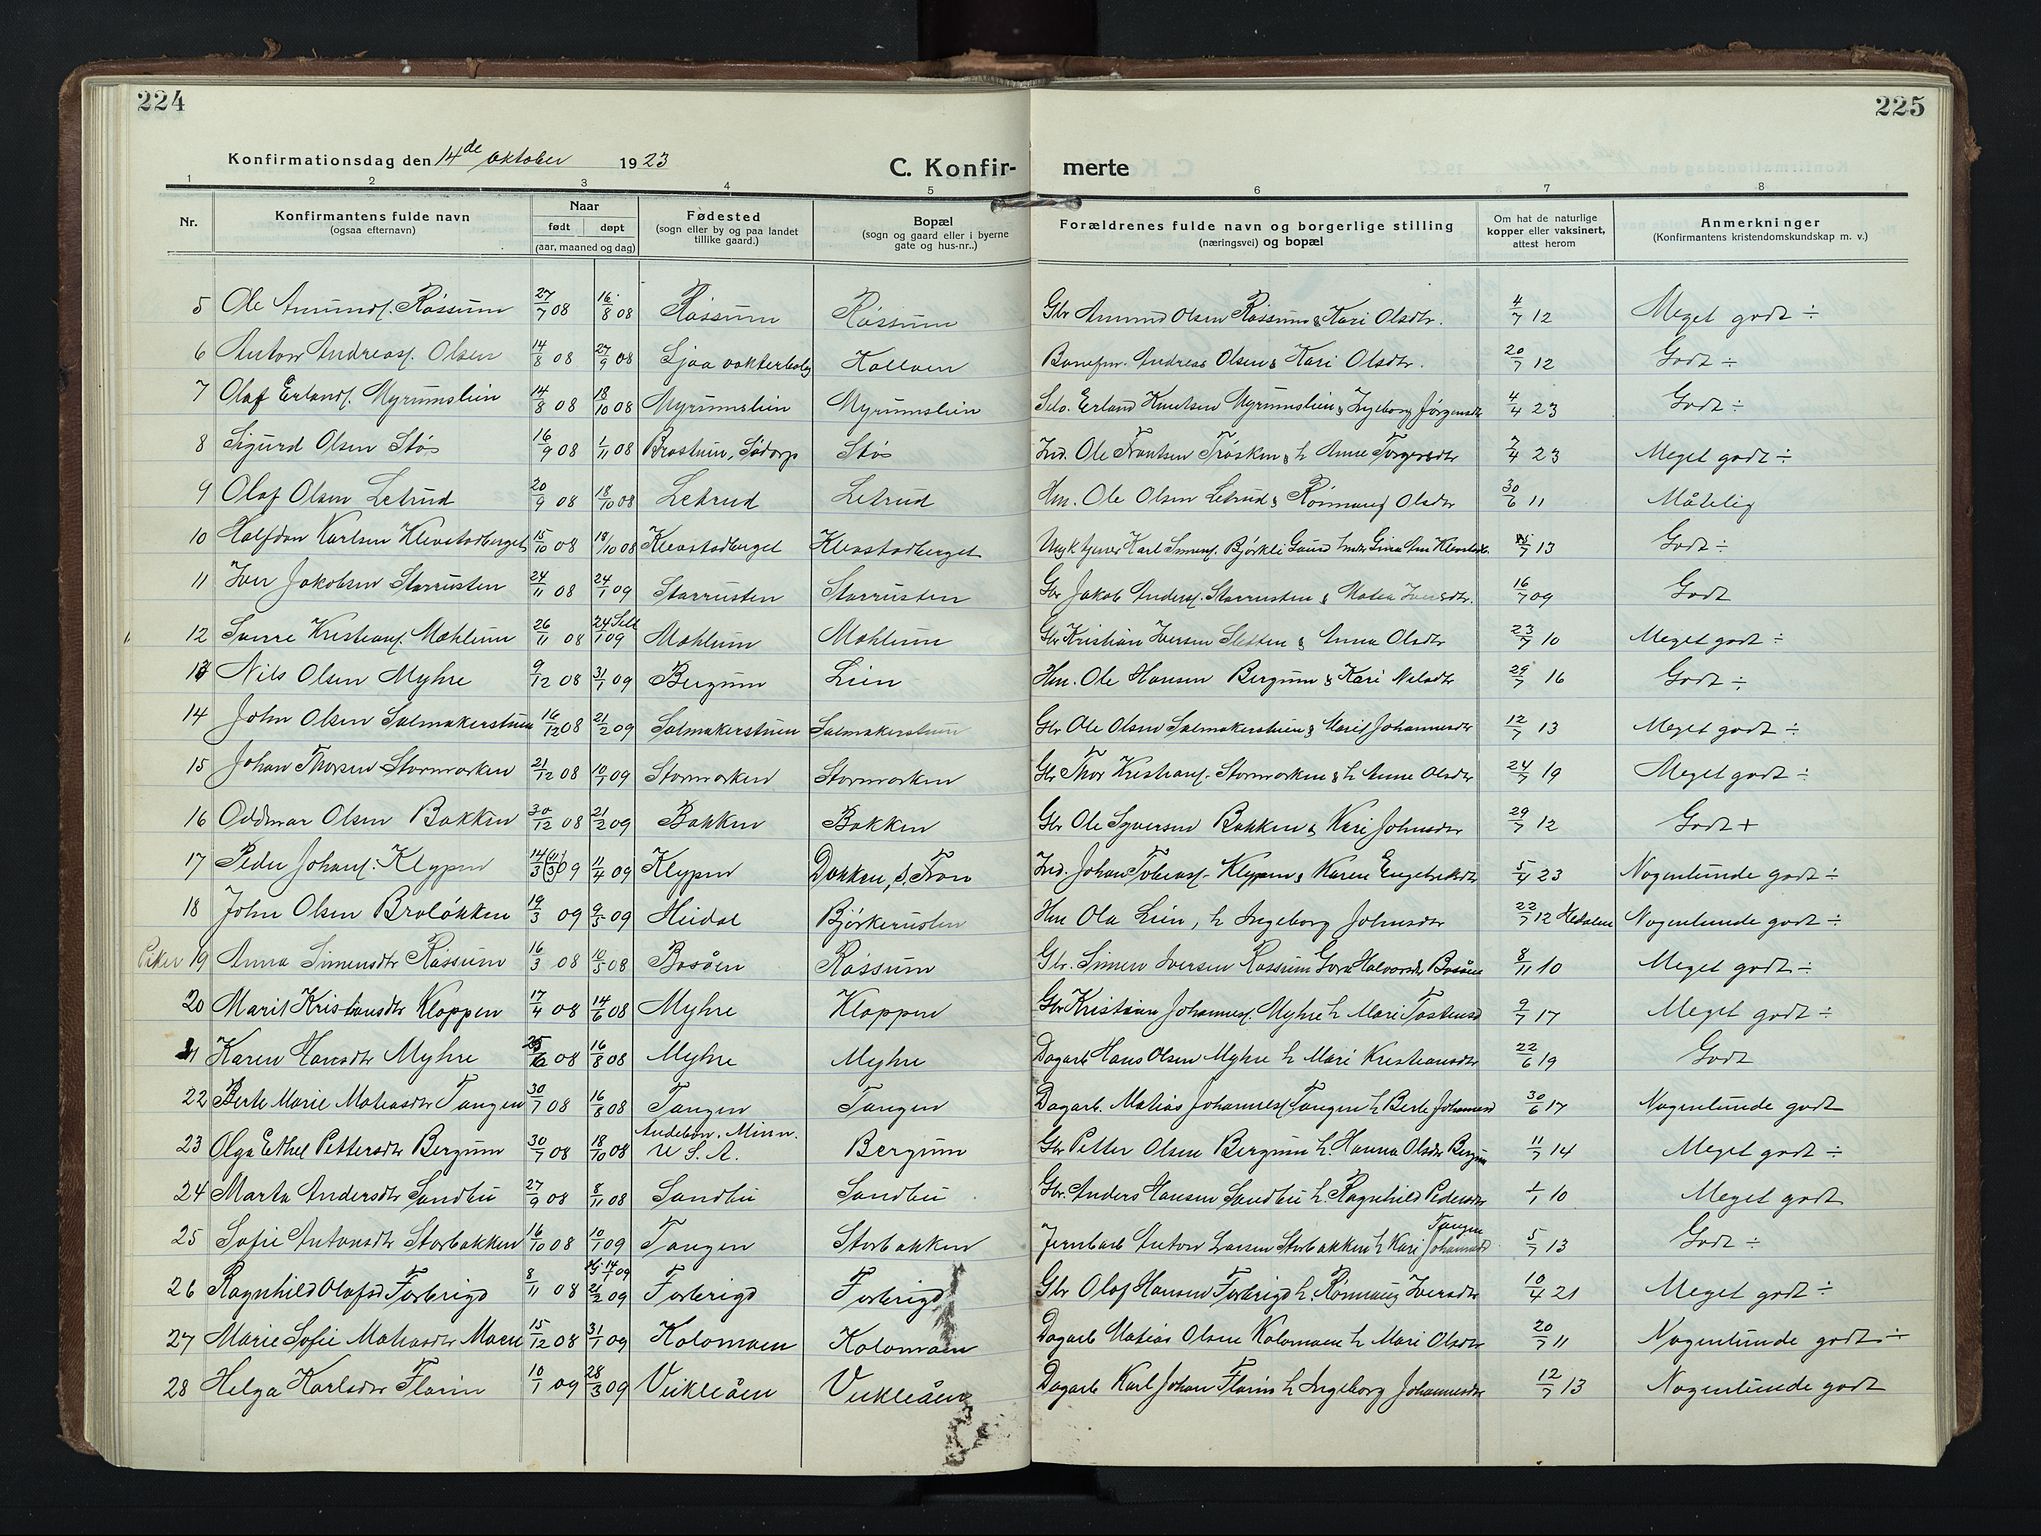 224
225
Konfirmationsdag den 14de oktober 1923
C. Konfir- merte
1 2 3 4 5 6 7 8
Nr. Konfirmantens fulde navn (ogsaa efternavn) Naar født døpt (aar, maaned og dag) Fødested (sogn eller by og paa landet tillike gaard.) Bopæl (sogn og gaard eller i byerne gate og hus-nr..) Forældrenes fulde navn og borgerlige stilling (næringsvei) og bopæl Om hat de naturlige kopper eller vaksinert, attest herom Anmerkninger (Konfirmantens kristendomskundskap m. v.)
5 Ole Amunds. Røssum 27/7 08 16/8 08 Røssum Røssum Gbr Amund Olsen Røssum & Kari Olsdtr. 4/7 12 Meget godt ÷
6 Anton Andreas. Olsen 14/8 08 27/9 08 Sjoa vokterbolig Kolloen Banefm. Andreas Olsen & Kari Olsdtr. 20/7 12 Godt ÷
7 Olaf Erlands. Myrumslien 14/8 08 18/10 08 Myrumslien Myrumslien Selv. Erland Knutsen Myrumslien & Ingeborg Jørgensdtr 4/4 23 Godt ÷
8 Sigurd Olsen Støs 16/9 08 1/11 08 Brostuen, Sødorp Støs Ind. Ole Frantsen Trøsken & h Anne Torgersdtr 7/4 23 Meget godt ÷
9 Olaf Olsen Letrud 20/9 08 18/10 08 Letrud Letrud Hm. Ole Olsen Letrud & Rønnaug Olsdtr 30/6 11 Måtelig
10 Halfdan Karlsen Klevstadberget 15/10 08 18/10 08 Klevstadberget Klevstadberget Karl Simens. Bjørkli 7 13 Godt ÷
11 Iver Jakobsen Starrusten 24/11 08 24/1 09 Starrusten Starrusten Gbr Jakob Anders. Starrusten & Matea Iversdtr. 16/7 09 Godt
12 Sverre Kristians. Mæhlum 26/11 08 24/1 09 Mæhlum Mæhlum Gbr Kristian Iversen Sletten & Anna Olsdtr 23/7 10 Meget godt ÷
13 Nils Olsen Myhre 9/12 08 31/1 09 Bergum Lien Hm. Ole Hansen Bergum & Kari Nilsdtr 29/7 16 Godt ÷
14 John Olsen Salmakerstuen 16/12 08 21/2 09 Salmakerstuen Salmakerstuen Gbr Ole Olsen Salmakerstuen & Marit Johannesdtr 12/7 13 Meget godt ÷
15 Johan Thorsen Stormorken 21/12 08 10/1 09 Stormorken Stormorken Gbr Thor Kristians. Stormorken & h Anne Olsdtr 24/7 19 Meget godt ÷
16 Oddmar Olsen Bakken 30/12 08 21/2 09 Bakken Bakken Gbr Ole Syversen Bakken & Kari Johnsdtr 29/7 12 Godt +
17 Peder Johans. Klypen 14/3 (11/3) 09 11/4 09 Klypen Dokken, S. Fron Ind. Johan Tobias. Klypen & Karen Engebretsdtr 5/4 23 Nogenlunde godt ÷
18 John Olsen Broløkken 19/3 09 9/5 09 Heidal Bjørkerusten Hm Ola Lien, h Ingeborg Johnsdtr 22/7 12 Hedalen Nogenlunde godt ÷
Piker 19 Anna Simensdtr Røssum 16/3 08 10/5 08 Bosåen Røssum Gbr. Simen Iversen Røssum Halvorsdtr Bosåen 8/11 10 Meget godt ÷
20 Marit Kristiansdtr Kloppen 17/4 08 14/6 08 Myhre Kloppen Gbr Kristian Johannes. Myhre h Mari Tostensd 9/7 17 Meget godt ÷
21 Karen Hansdtr Myhre 25/6 08 16/8 08 Myhre Myhre Dagarb Hans Olsen Myhre h Mari Kristiansdtr 22/6 19 Godt
22 Berte Marie Matiasdtr Tangen 30/7 08 16/8 08 Tangen Tangen Dagarb. Matias Johannes. Tangen h Berte Johannesd 30/6 17 Nogenlunde godt
23 Olga Ethel Pettersdtr Bergum 30/7 08 18/10 08 Minn. U.S.A. Bergum Gbr Petter Olsen Bergum h. Hanna Olsdtr Bergum 11/7 14 Meget godt ÷
24 Marta Andersdtr Sandbu 27/9 08 8/11 08 Sandbu Sandbu Gbr. Anders Hansen Sandbu h. Ragnhild Pedersdtr 1/1 10 Meget godt
25 Sofie Antonsdtr Storbakken 16/10 08 10/1 09 Tangen Storbakken Jernbarb Anton Larsen Storbakken h Kari Johannesd Tangen 5/7 13 Godt ÷
26 Ragnhild Olafsd Forbrigd 8/11 08 14/1 09 21/2 09 Forbrigd Forbrigd Gbr Olaf Hansen Forbrigd h. Rønnaug Iversdtr 10/4 21 Meget godt ÷
27 Marie Sofie Matiasdtr Moen 15/12 08 31/1 09 Kolomoen Kolomoen Dagarb Matias Olsen Kolomoen h Mari Olsdtr 20/7 11 Nogenlunde godt ÷
28 Helga Karlsdtr Florin 10/1 09 28/3 09 Veikleåen Veikleåen Dagarb Karl Johan Florin h Ingeborg Johannesdtr 12/7 13 Nogenlunde godt